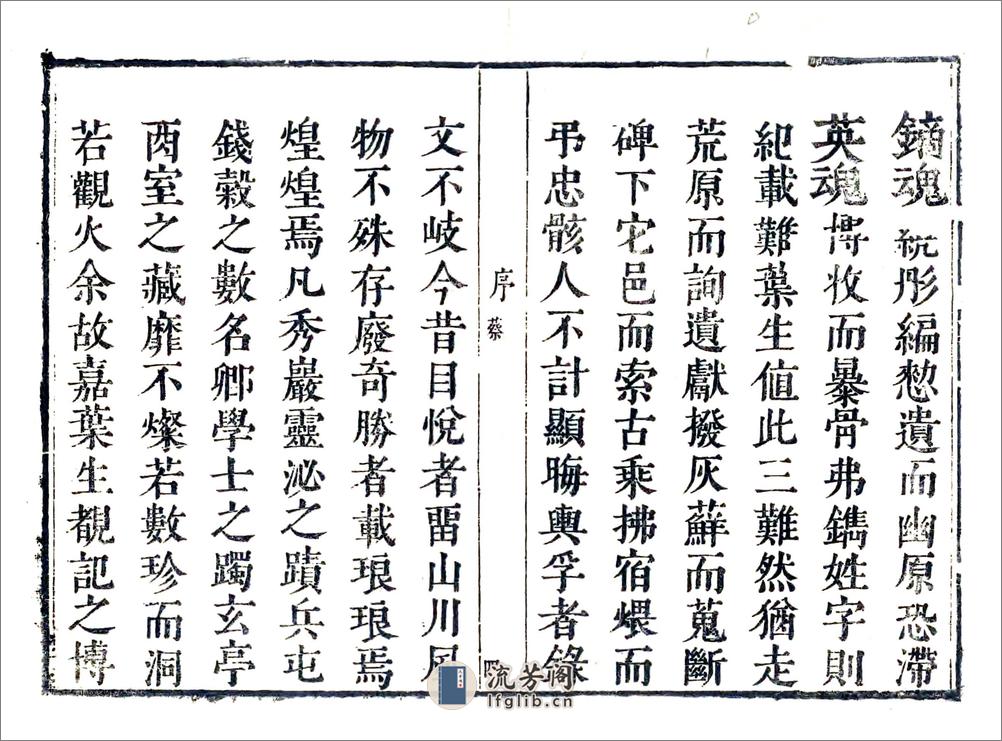 鏑魂統彤編愸遺而幽原恐滯
英魂博收而暴骨弗鐫姓字則
紀載難葉生值此三難然猶走
荒原而詢遺獻撥灰蘚而蒐斷
碑下它邑而索古乘拂宿煨而
弔忠骸人不計顯晦輿孚者錄
序 蔡 四
文不岐今昔目悅者畱山川風
物不殊存廢奇勝者載琅琅焉
煌煌焉凡秀巖靈泌之蹟兵屯
錢榖之數名卿學士之躅玄亭
酉室之藏靡不燦若數珍而洞
若觀火余故嘉葉生覩記之博
流芳阁
lfglib.cn